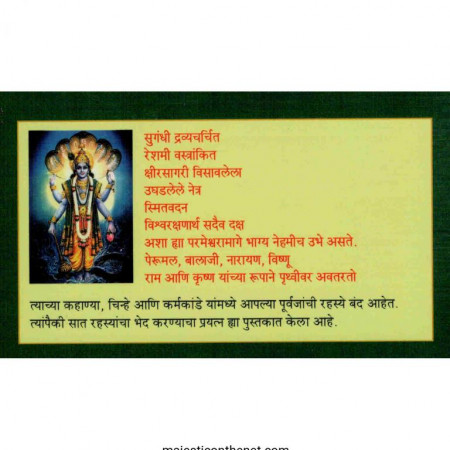 सुगंधी द्रव्यचर्चित
रेशमी वस्त्रांकित
क्षीरसागरी विसावलेला
उघडलेले नेत्र
स्मितवदन
विश्वरक्षणार्थ सदैव दक्ष
अशा ह्या परमेश्वरामागे भाग्य नेहमीच उभे असते.
पेरूमल, बालाजी, नारायण, विष्णू
राम आणि कृष्ण यांच्या रूपाने पृथ्वीवर अवतरतो
त्याच्या कहाण्या, चिन्हे आणि कर्मकांडे यांमध्ये आपल्या पूर्वजांची रहस्ये बंद आहेत.
त्यांपैकी सात रहस्यांचा भेद करण्याचा प्रयत्न ह्या पुस्तकात केला आहे.
majesticonthenet.com